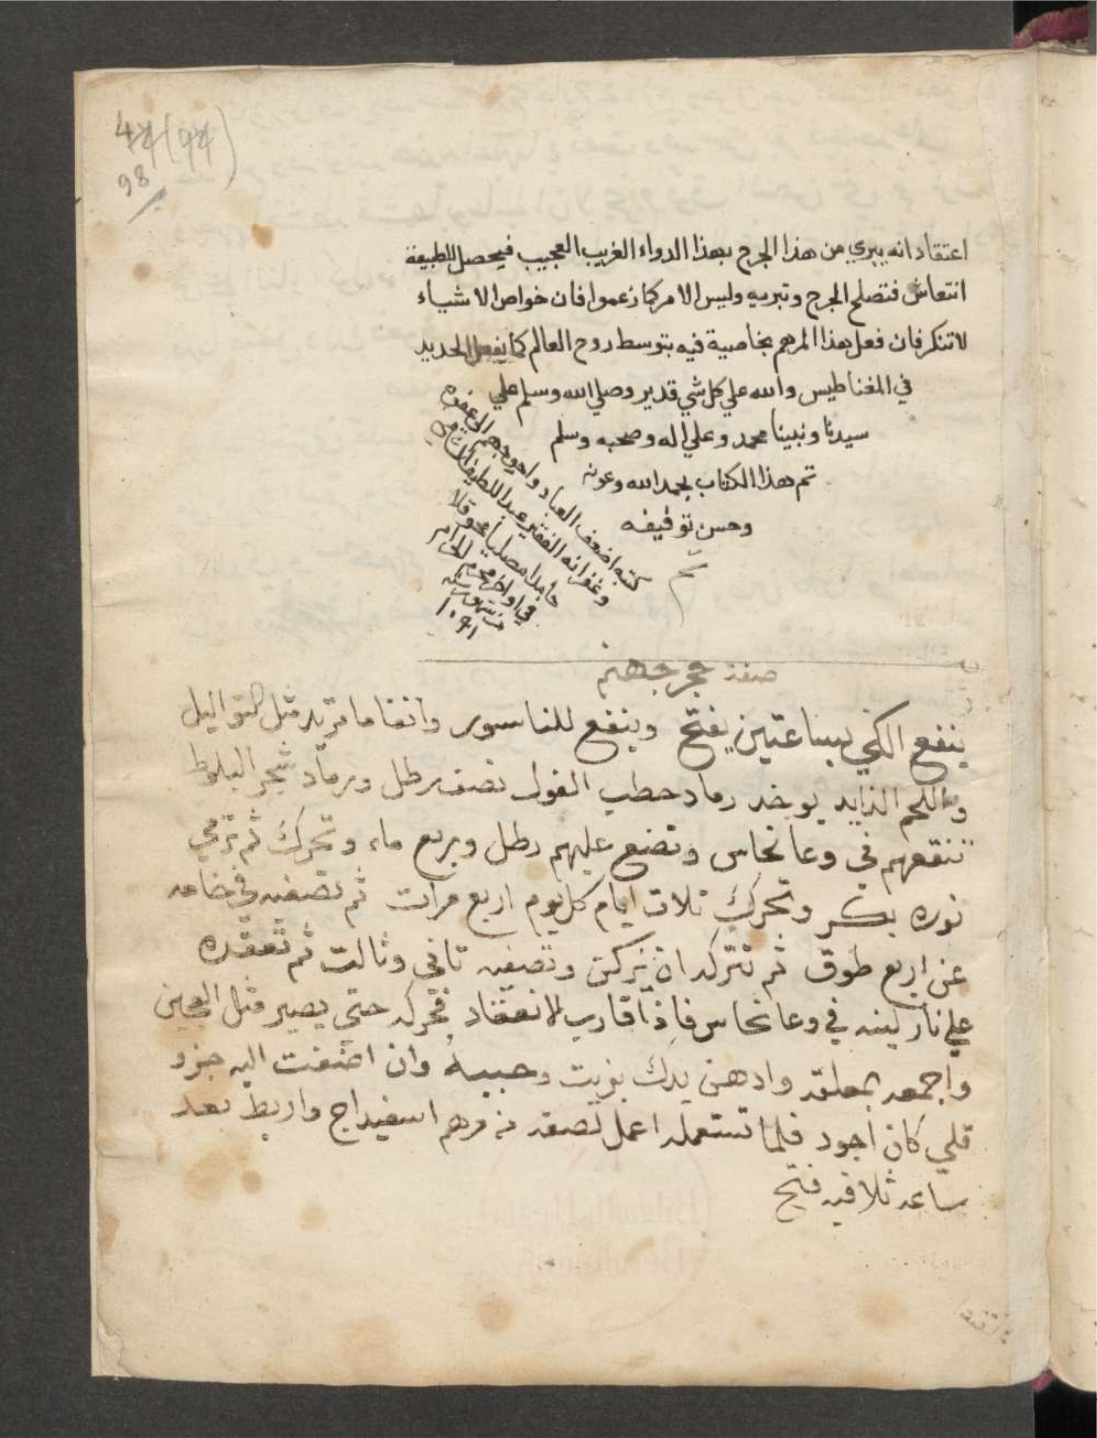 44 (94)
98
اعتقاد انه يبري من هذا الجرح بهذا الدواء الغريب العجيب فيحصل للطبيعة
انتعاش فتصلح الجرح وتبريه وليس الامر كما زعموا فان خواص الاشياء
لا تنكر فان فعل هذا المرهم بخاصية فيه بتوسط روح العالم كما يفعل الحديد
في المغناطيس والله علي كل شي قدير وصلي الله وسلم علي
سيدنا ونبينا محمد وعلي اله وصحبه وسلم
تم هذا الكتاب بحمد الله وعونه
وحسن توفيقه
تم
كتبه اضعف العباد واحوجهم الى عفوه
وغفرانه الفقير عبد اللطيف
حامدا مصليا محوقلا
في اواخر محرم الحرام
من شهور سنة
١٠٩١
صفة حجر جهنم
ينفع الكي بساعتين يفتح وينفع للناسور وانفا ما تريد مثل التواليل
واللحم الزايد يوخد رماد حطب الفول نصف رطل ورماد شجر البلوط
تنقعهم في وعا نحاس وتضع عليهم رطل وربع ماء وتحرك ثم ترمي
نوره بكر وتحرك تلات ايام كل يوم اربع مرات ثم تصفيه في
عن اربع طوق ثم تتركه ان يركن وتصفيه تاني وتالت ثم تعقده
علي نار لينه في وعا نحاس فاذا قارب لانعقاد فحركه حتي يصير مثل العجين
واجمعه بمعلقه وادهن يدك بزيت وحببه وان اضفت اليه جزو
قلي كان اجود فلما تستعمله اعمل لصقه من مرهم اسفيداج واربط بعد
ساعه تلاقيه فتح